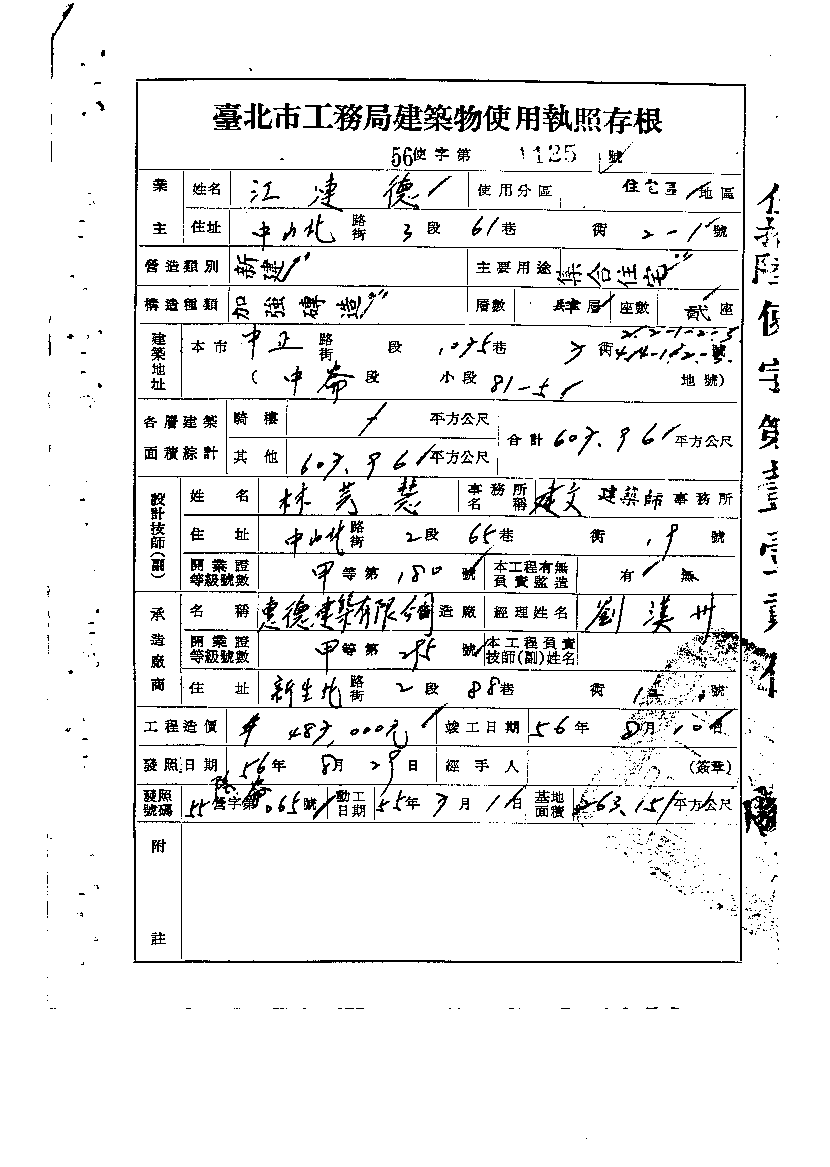 臺北市工務局建築物使用執照存根
56使字第 1125 號
業主 姓名 江連德 使用分區 住宅區 地區
住址 中山北 路街 3 段 61 巷 衖 2-1 號
營造類別 新建 主要用途 集合住宅
構造種類 加強磚造 層數 肆層 座數 貳座
建築地址 本市 中正 路街 段 巷 衖 號
(中崙段 小段 81-5 地號)
各層建築面積綜計 騎樓 平方公尺 合計 平方公尺
其他 平方公尺
設計技師(副) 姓名 林芳慧 事務所名稱 建文 建築師事務所
住址 中山北 路街 2 段 65 巷 衖 19 號
開業證等級號數 甲等第 180 號 本工程有無負責監造 有 無
承造廠商 名稱 惠德建築有限公司 造廠 經理姓名 劉漢州
開業證等級號數 甲等第 295 號 本工程負責技師(副)姓名
住址 新生北 路街 2 段 88 巷 衖 號
工程造價 竣工日期 56 年 8 月 10 日
發照日期 56 年 8 月 29 日 經手人 (簽章)
發照號碼 55 營字第 065 號 動工日期 55 年 月 1 日 基地面積 263.15 平方公尺
附註
伍拾陸使字第壹壹貳伍